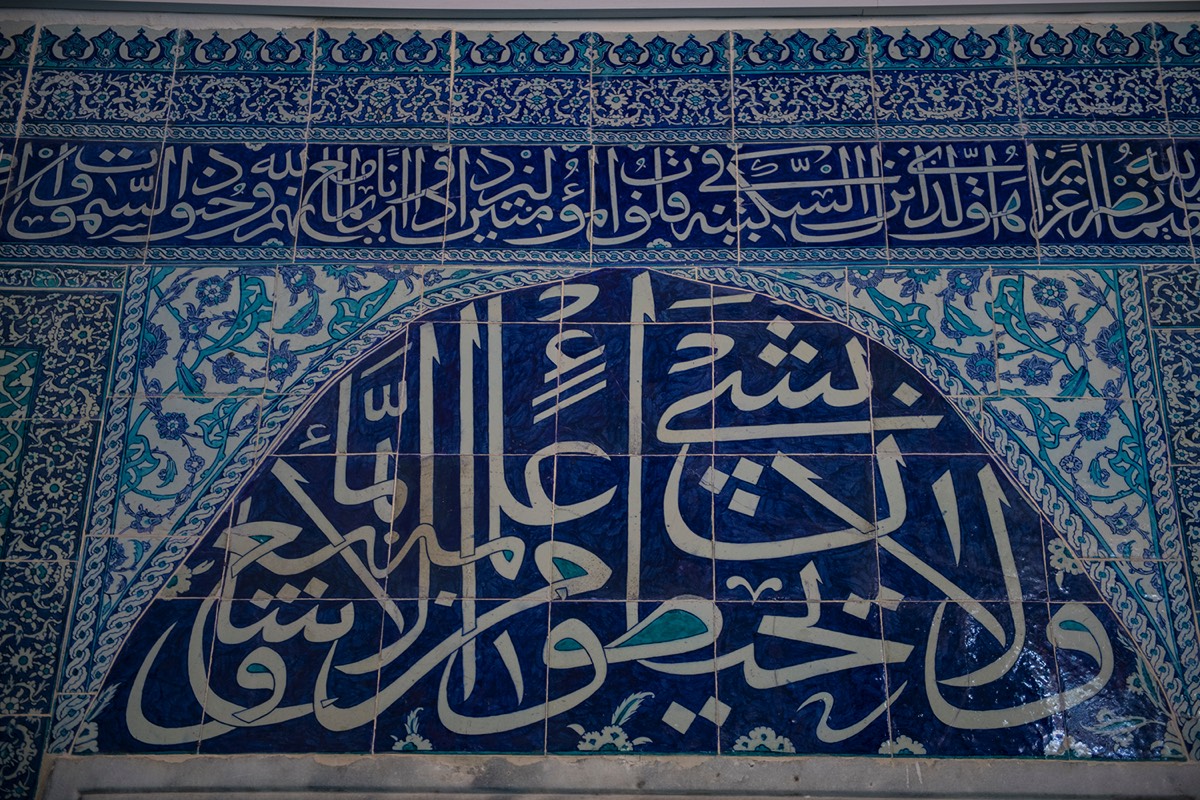 الله نصرا عزيزا هو الذي انزل السكينة في قلوب المؤمنين ليزدادوا ايمانا مع ايمانهم ولله جنود السموات
ولا يحيطون بشيء من علمه الا بما شاء وسع